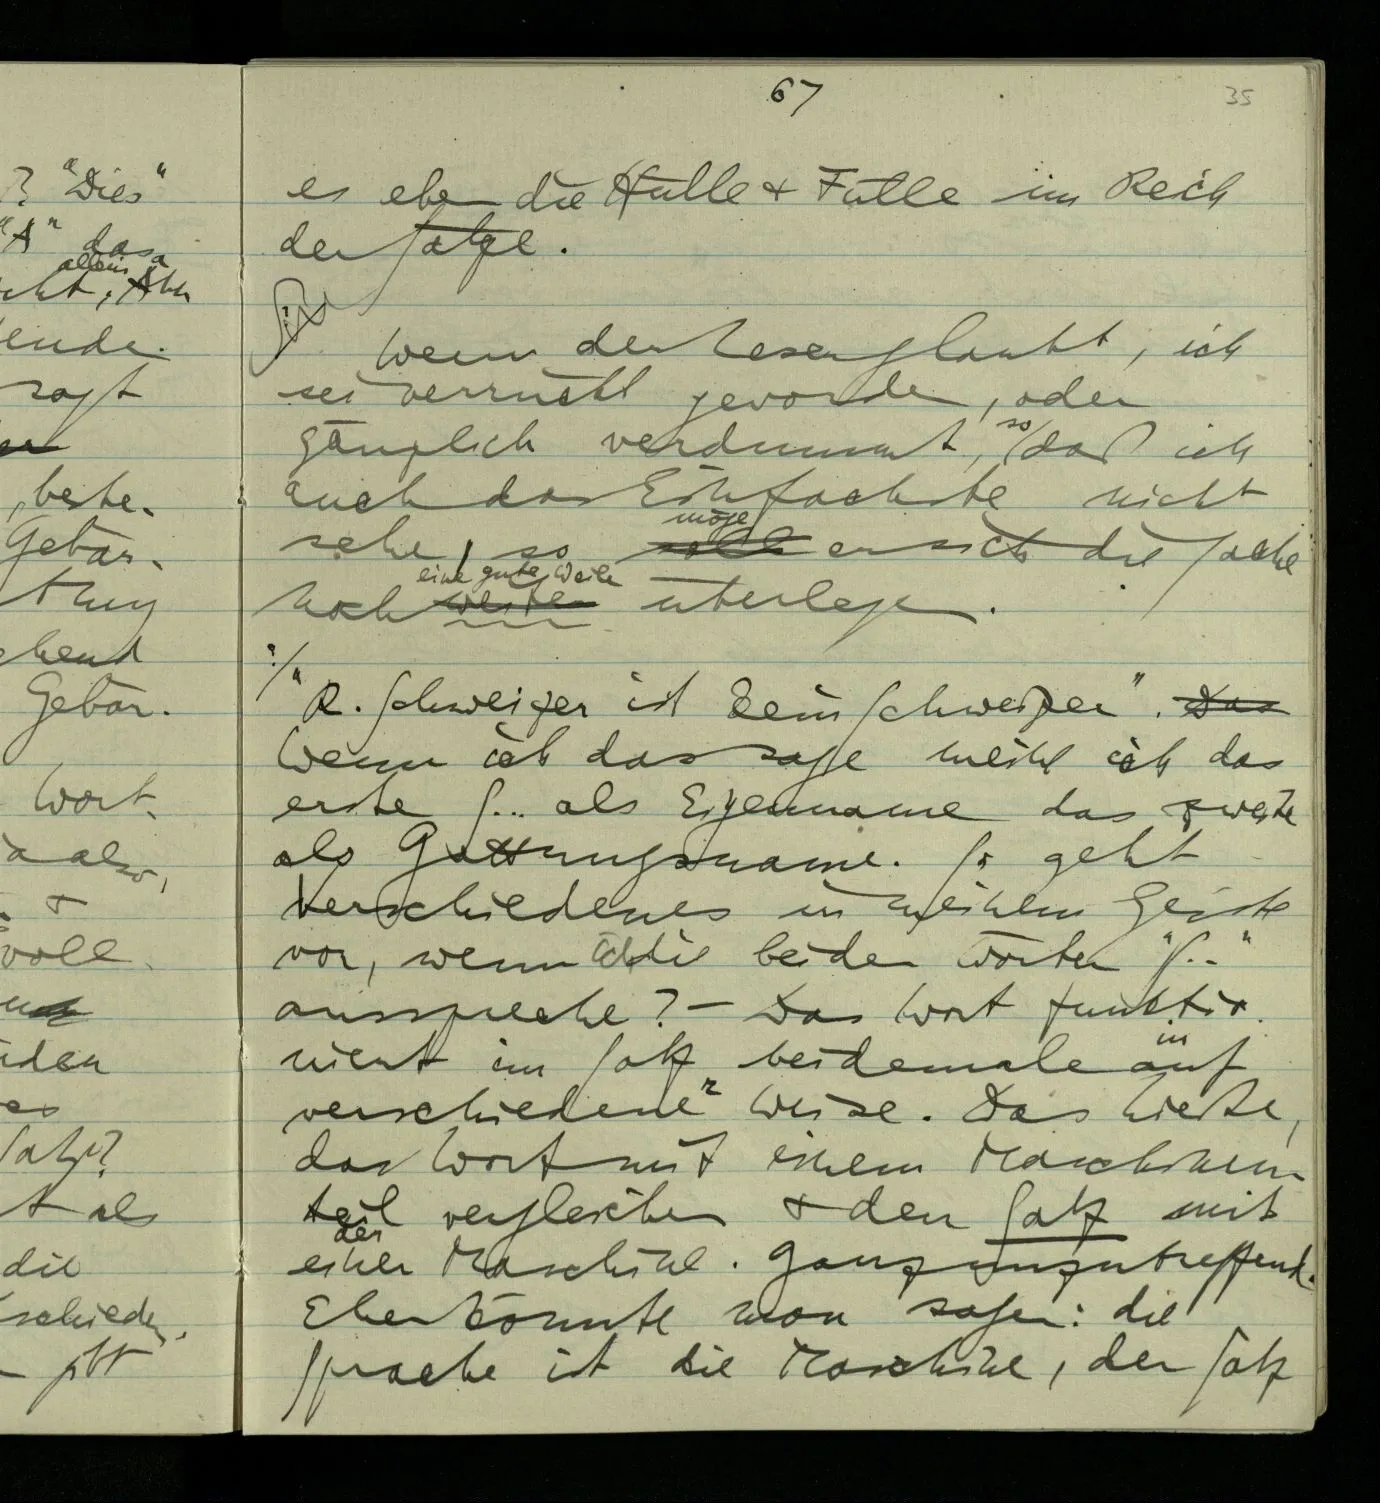 ? "Dies"
"A" das
allein a
cht, Aber
ende.
sagt
, bete-
Gebär-
tung
chend
Gebär.
Wort.
a also,
. &
voll
nden
es
Satz?
t als
die
schieden,
67
35
es eben die Hülle & Fülle im Reich
der Sätze.
Wenn der Leser glaubt, ich
sei verrückt geworden, oder
so
gänzlich verdummt, daß ich
auch das Einfachste nicht
möge
sehe, so soll er sich die Sache
eine gute Weile
noch weiter überlegen.
?/
"R. Schweizer ist kein Schweizer". Das
Wenn ich das sage meine ich das
erste S... als Eigenname das zweite
als Gattungsname. So geht
verschiedenes in meinem Geiste
vor, wenn ich die beiden Wörter "S.."
ausspreche? – Das Wort funktio-
in
niert im Satz beidemale auf
verschiedene r Weise. Das hieße,
das Wort mit einem Maschinen-
teil vergleichen & den Satz mit
der
einer Maschine. Ganz unzutreffend.
Eher könnte man sagen: die
Sprache ist die Maschine, der Satz